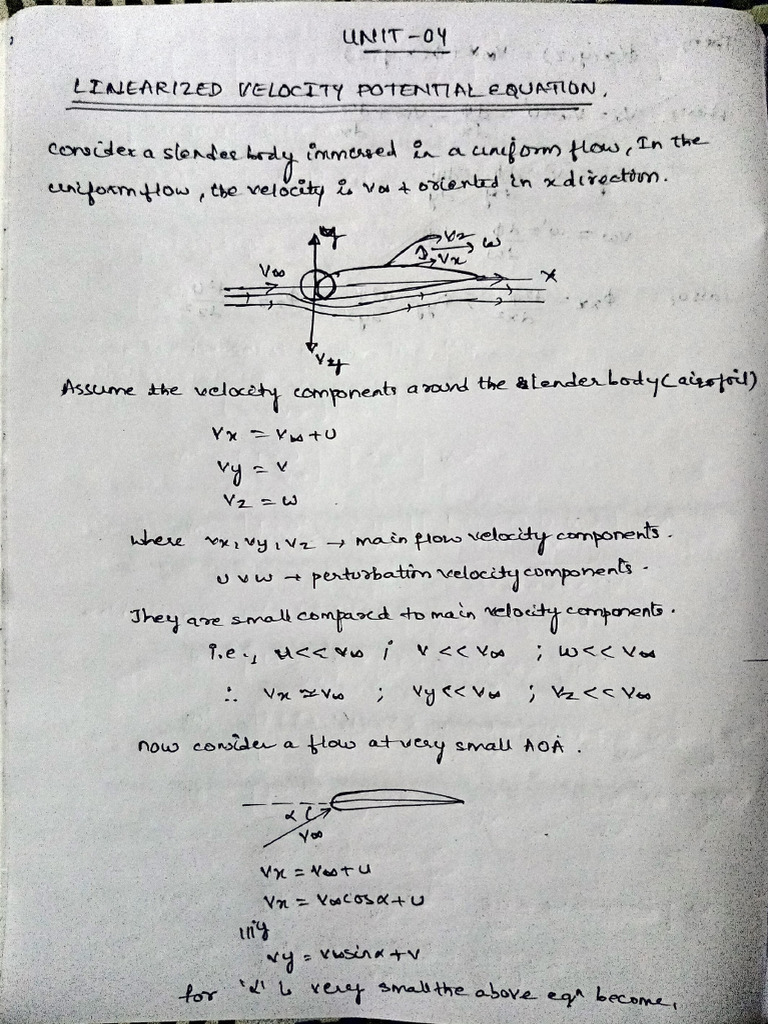 UNIT-04
LINEARIZED VELOCITY POTENTIAL EQUATION.
Consider a slender body immersed in a uniform flow, In the
uniform flow, the velocity is V∞ & oriented in x direction.
y Vz w
V∞ Vx x
Vy
Assume the velocity components around the slender body (airofoil)
Vx = V∞ + U
Vy = V
Vz = w
where Vx, Vy, Vz → main flow velocity components.
U V W → perturbation velocity components.
They are small compared to main velocity components.
i.e., u << V∞ ; V << V∞ ; w << V∞
∴ Vx ≈ V∞ ; Vy << V∞ ; Vz << V∞
now consider a flow at very small AOA.
α
V∞
Vx = V∞ + U
Vx = V∞ cosα + U
|||ly
Vy = V∞ sinα + V
for 'α' is very small the above eqn become,